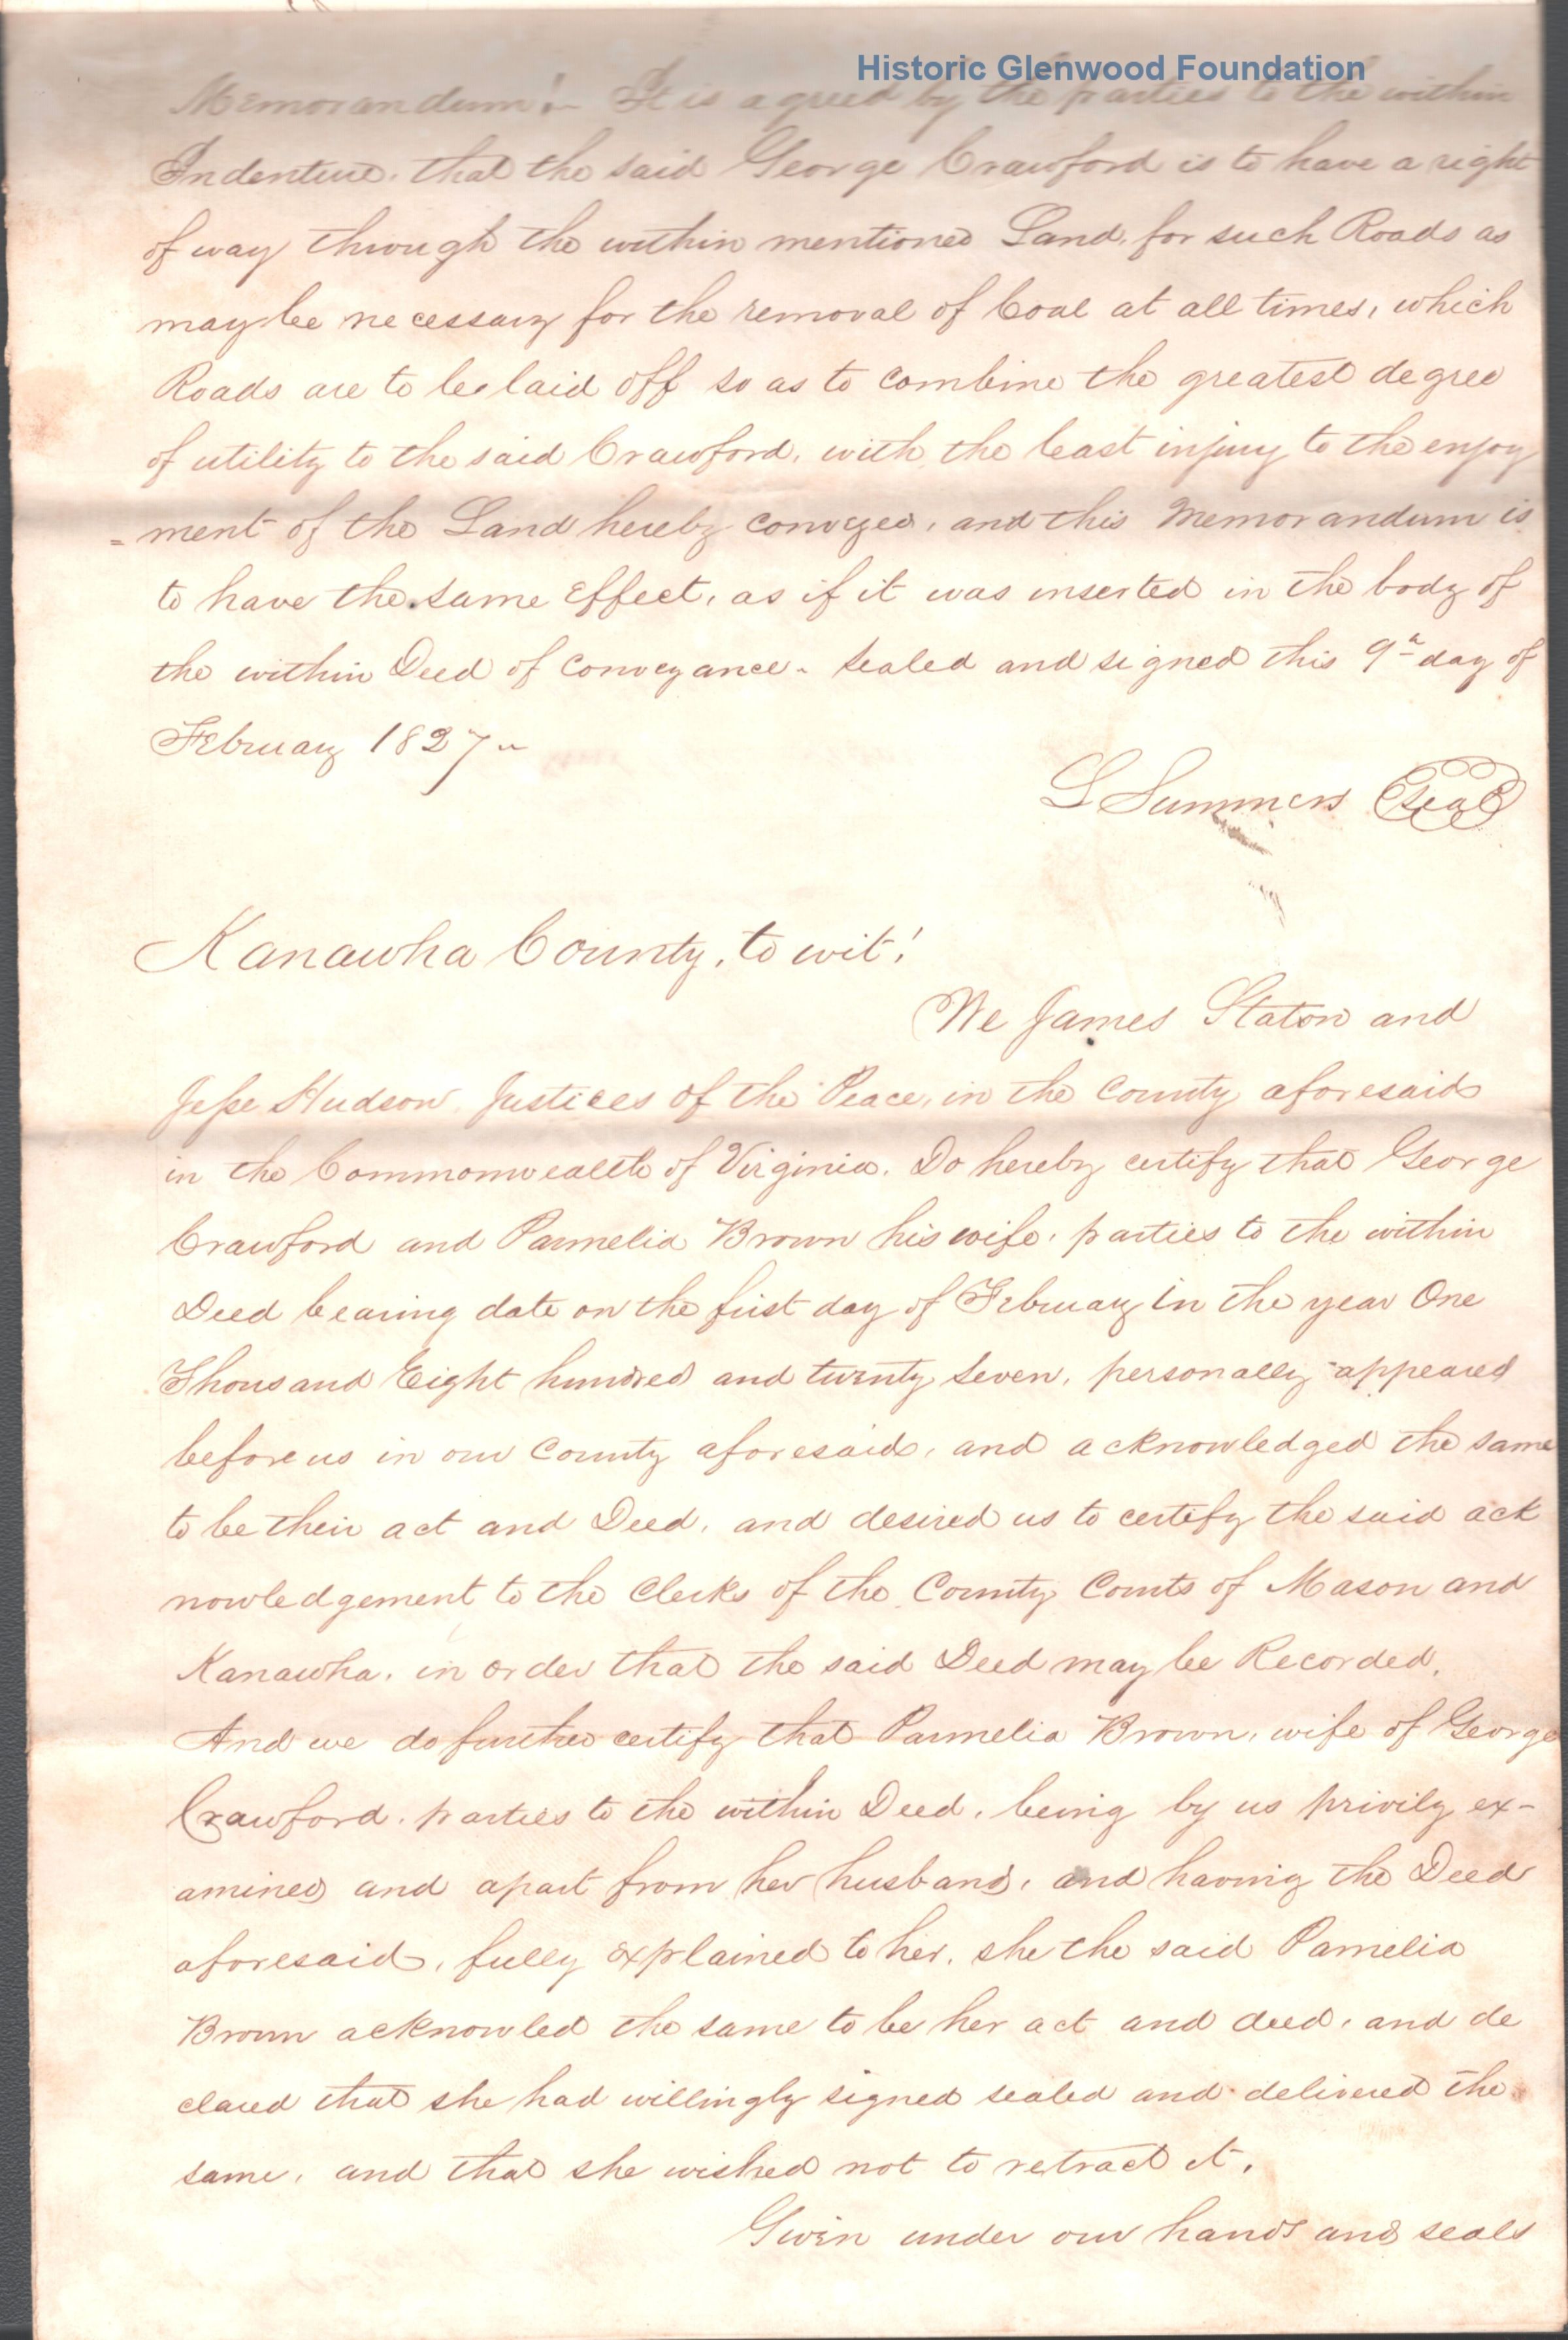 Historic Glenwood Foundation
Memorandum:- It is agreed by the parties to the within
Indenture, that the said George Crawford is to have a right
of way through the within mentioned Land, for such Roads as
may be necessary for the removal of Coal at all times, which
Roads are to be laid off so as to combine the greatest degree
of utility to the said Crawford, with the least injury to the enjoy
=ment of the Land hereby conveyed, and this Memorandum is
to have the same Effect, as if it was inserted in the body of
the within Deed of Conveyance. Sealed and signed this 9th day of
February 1827
L Summers Seal
Kanawha County, to wit:
We James Staton and
Jesse Hudson Justices of the Peace, in the County aforesaid
in the Commonwealth of Virginia. Do hereby certify that George
Crawford and Pamelia Brown his wife, parties to the within
Deed bearing date on the first day of February in the year One
Thousand Eight hundred and twenty Seven, personally appeared
before us in our County aforesaid, and acknowledged the same
to be their act and Deed, and desired us to certify the said ack
nowledgement to the Clerks of the County Courts of Mason and
Kanawha, in order that the said Deed may be Recorded.
And we do further certify that Pamelia Brown, wife of George
Crawford, parties to the within Deed, being by us privily ex-
amined and apart from her husband, and having the Deed
aforesaid, fully explained to her, she the said Pamelia
Brown acknowled the same to be her act and deed, and de
clared that she had willingly signed sealed and delivered the
same, and that she wished not to retract it.
Given under our hands and seals